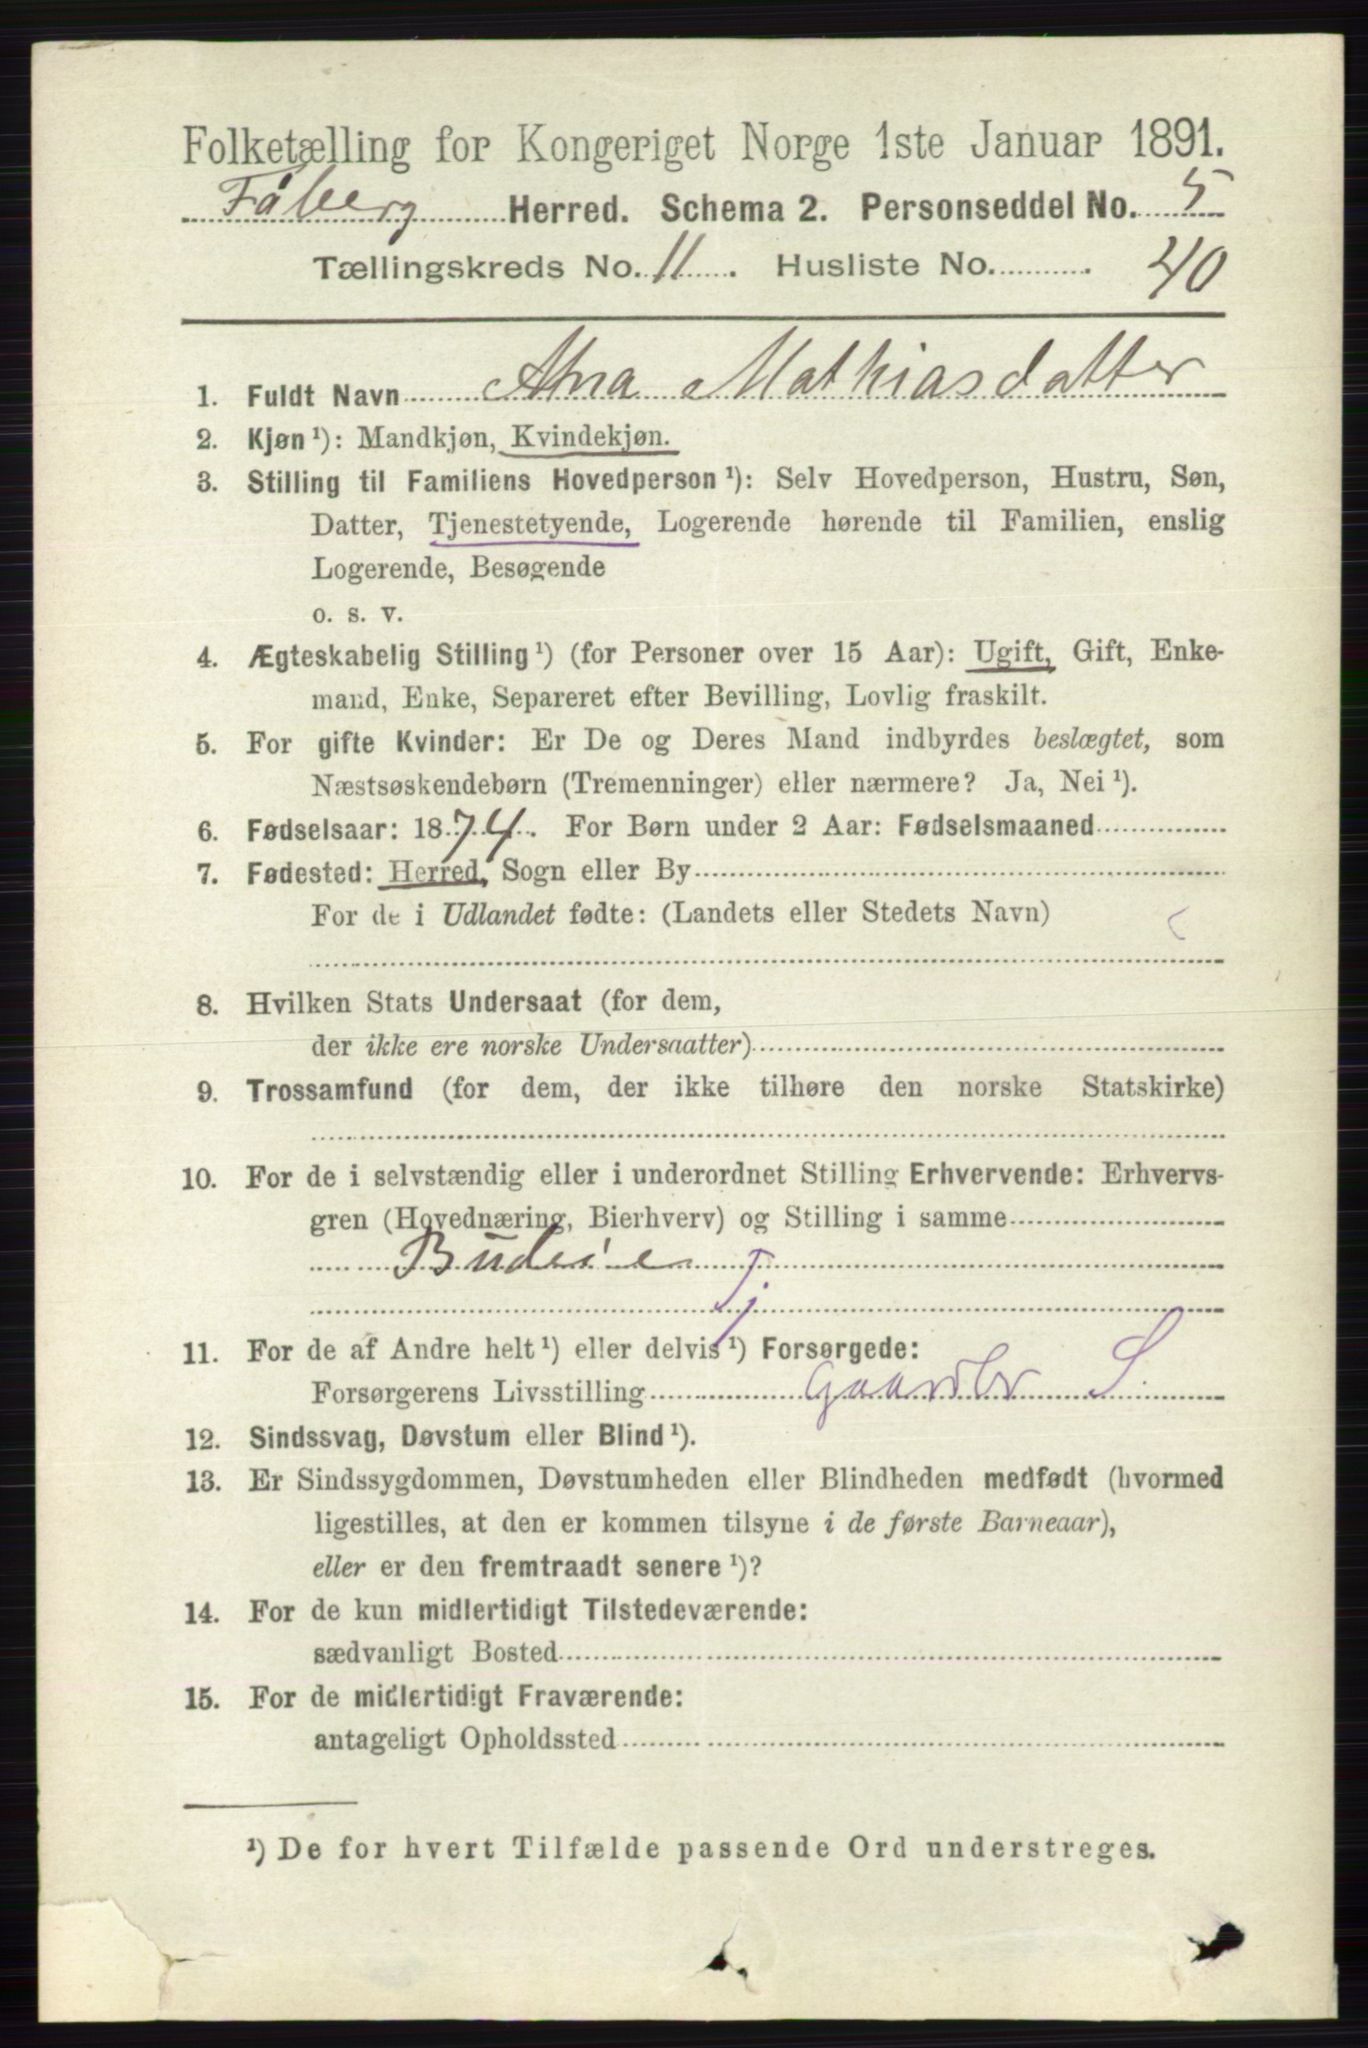 Folketælling for Kongeriget Norge 1ste Januar 1891.
Fåberg Herred. Schema 2. Personseddel No. 5
Tællingskreds No. 11. Husliste No. 40
1. Fuldt Navn Ana Mathiasdatter
2. Kjøn ¹): Mandkjøn, Kvindekjøn.
3. Stilling til Familiens Hovedperson ¹): Selv Hovedperson, Hustru, Søn,
Datter, Tjenestetyende, Logerende hørende til Familien, enslig
Logerende, Besøgende
o. s. v.
4. Ægteskabelig Stilling ¹) (for Personer over 15 Aar): Ugift, Gift, Enke-
mand, Enke, Separeret efter Bevilling, Lovlig fraskilt.
5. For gifte Kvinder: Er De og Deres Mand indbyrdes beslægtet, som
Næstsøskendebørn (Tremenninger) eller nærmere? Ja, Nei ¹).
6. Fødselsaar: 1874. For Børn under 2 Aar: Fødselsmaaned
7. Fødested: Herred, Sogn eller By
For de i Udlandet fødte: (Landets eller Stedets Navn)
8. Hvilken Stats Undersaat (for dem,
der ikke ere norske Undersaatter)
9. Trossamfund (for dem, der ikke tilhøre den norske Statskirke)
10. For de i selvstændig eller i underordnet Stilling Erhvervende: Erhvervs-
gren (Hovednæring, Bierhverv) og Stilling i samme
Budeie Tj
11. For de af Andre helt ¹) eller delvis ¹) Forsørgede:
Forsørgerens Livsstilling Gaardbr S.
12. Sindssvag, Døvstum eller Blind ¹).
13. Er Sindssygdommen, Døvstumheden eller Blindheden medfødt (hvormed
ligestilles, at den er kommen tilsyne i de første Barneaar),
eller er den fremtraadt senere ¹)?
14. For de kun midlertidigt Tilstedeværende:
sædvanligt Bosted
15. For de midlertidigt Fraværende:
antageligt Opholdssted
¹) De for hvert Tilfælde passende Ord understreges.